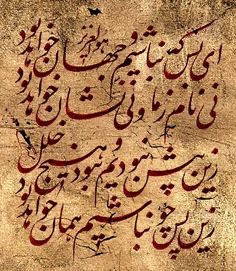 هو العزیز
ای بس که نباشیم و جهان خواهد بود
نی نام ز ما و نی نشان خواهد بود
زین پیش نبودیم و نبود هیچ خلل
زین پس چو نباشیم همان خواهد بود